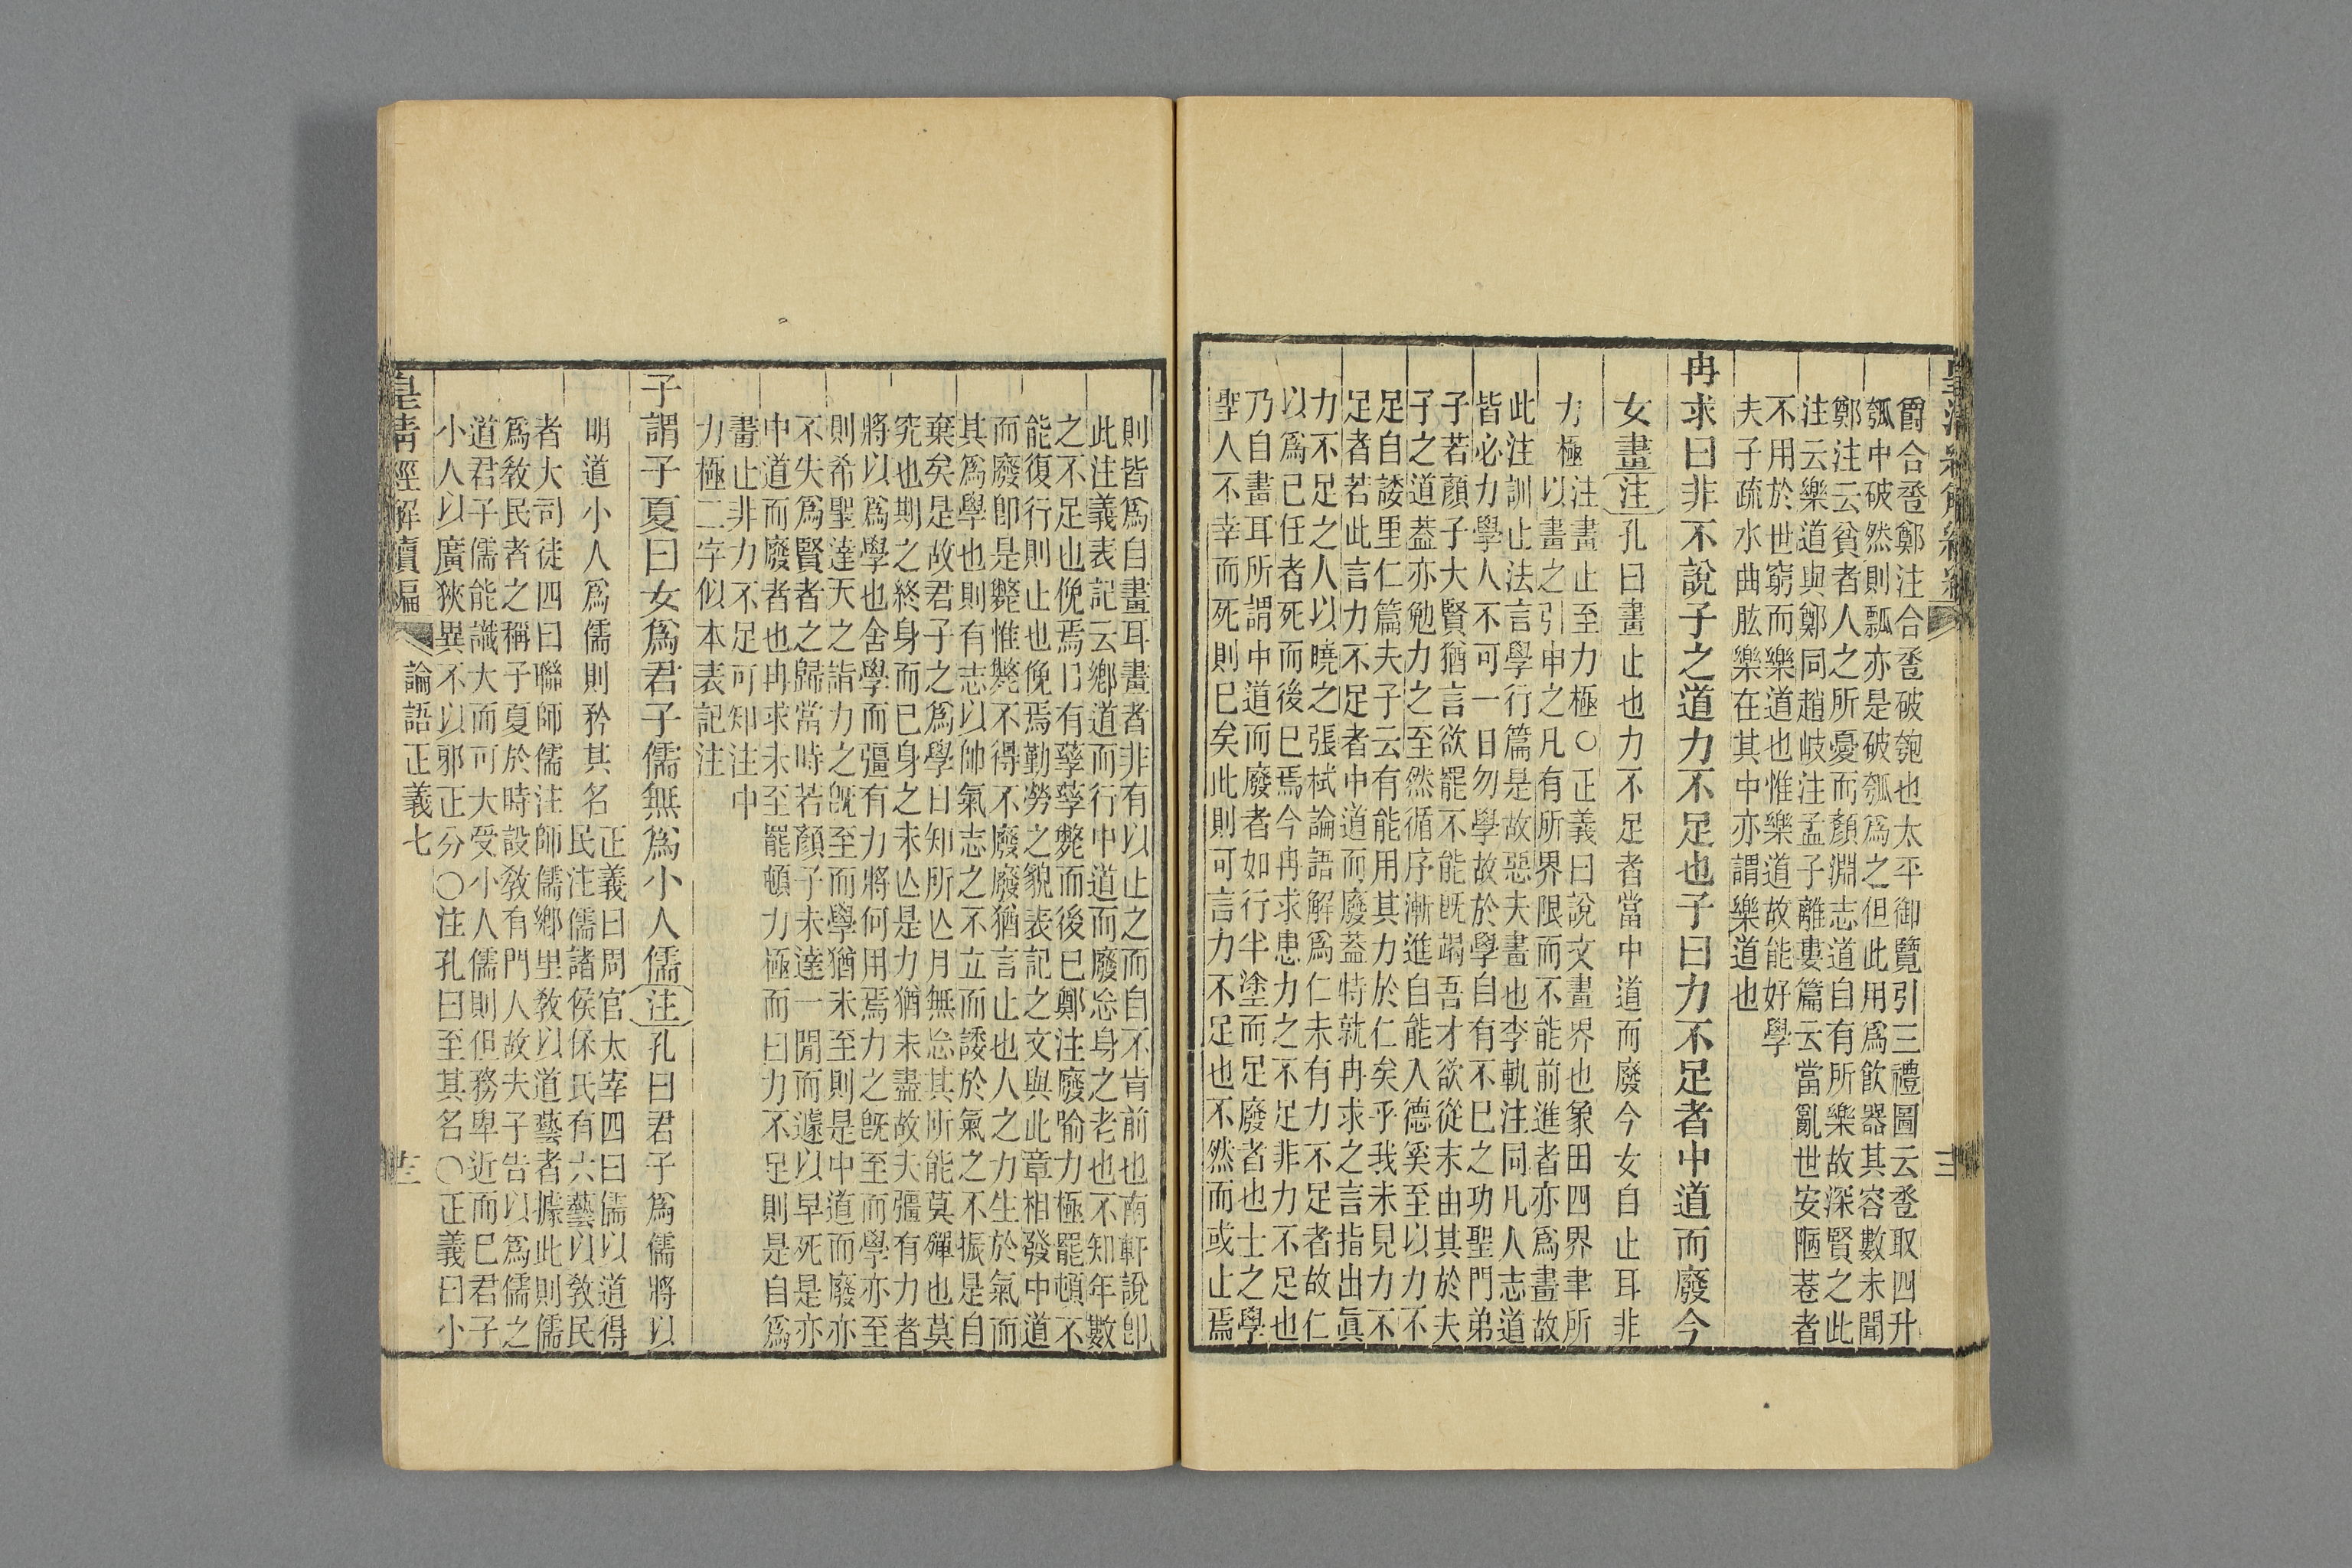 爵合巹鄭注合巹破匏也太平御覽引三禮圖云巹取四升
瓠中破然則瓢亦是破瓠爲之但此用爲飮器其容數未聞
鄭注云貧者人之所憂而顏淵志道自有所樂故深賢之此
注云樂道與鄭同趙岐注孟子離婁篇云當亂世安陋巷者
不用於世窮而樂道也惟樂道故能好學
夫子疏水曲肱樂在其中亦謂樂道也
冉求曰非不說子之道力不足也子曰力不足者中道而廢今
女畫注孔曰畫止也力不足者當中道而廢今女自止耳非
力極
注畫止至力極○正義曰說文畫界也象田四界聿所
以畫之引申之凡有所界限而不能前進者亦爲畫故
此注訓止法言學行篇是故惡夫畫也李軌注同凡人志道
皆必力學人不可一日勿學故於學自有不已之功聖門弟
子若顏子大賢猶言欲罷不能旣竭吾才欲從末由其於夫
子之道蓋亦勉力之至然循序漸進自能入德奚至以力不
足自諉里仁篇夫子云有能用其力於仁矣乎我未見力不
足者若此言力不足者中道而廢蓋特就冉求之言指出眞
力不足之人以曉之張栻論語解爲仁未有力不足者故仁
以爲己任者死而後已焉今冉求患力之不足非力不足也
乃自畫耳所謂中道而廢者如行半塗而足廢者也士之學
聖人不幸而死則已矣此則可言力不足也不然而或止焉
則皆爲自畫耳畫者非有以止之而自不肯前也南軒說卽
此注義表記云鄉道而行中道而廢忘身之老也不知年數
之不足也俛焉日有孳孳斃而後已鄭注廢喻力極罷頓不
能復行則止也俛焉勤勞之貌表記之文與此章相發中道
而廢卽是斃惟斃不得不廢廢猶言止也人之力生於氣而
其爲學也則有志以帥氣志之不立而諉於氣之不振是自
棄矣是故君子之爲學日知所亡月無忘其所能莫殫也莫
究也期之終身而已身之未亡是力猶未盡故夫彊有力者
將以爲學也舍學而彊有力將何用焉力之旣至而學亦至
則希聖達天之詣力之旣至而學猶未至則是中道而廢亦
不失爲賢者之歸當時若顏子未達一閒而遽以早死是亦
中道而廢者也冉求未至罷頓力極而曰力不足則是自爲
畫止非力不足可知注中
力極二字似本表記注
子謂子夏曰女爲君子儒無爲小人儒注孔曰君子爲儒將以
明道小人爲儒則矜其名
正義曰周官太宰四曰儒以道得
民注儒諸侯保氏有六藝以敎民
者大司徒四曰聯師儒注師儒鄉里敎以道藝者據此則儒
爲敎民者之稱子夏於時設敎有門人故夫子告以爲儒之
道君子儒能識大而可大受小人儒則但務卑近而已君子
小人以廣狹異不以邪正分○注孔曰至其名○正義曰小
皇淸經解續編
論語正義七